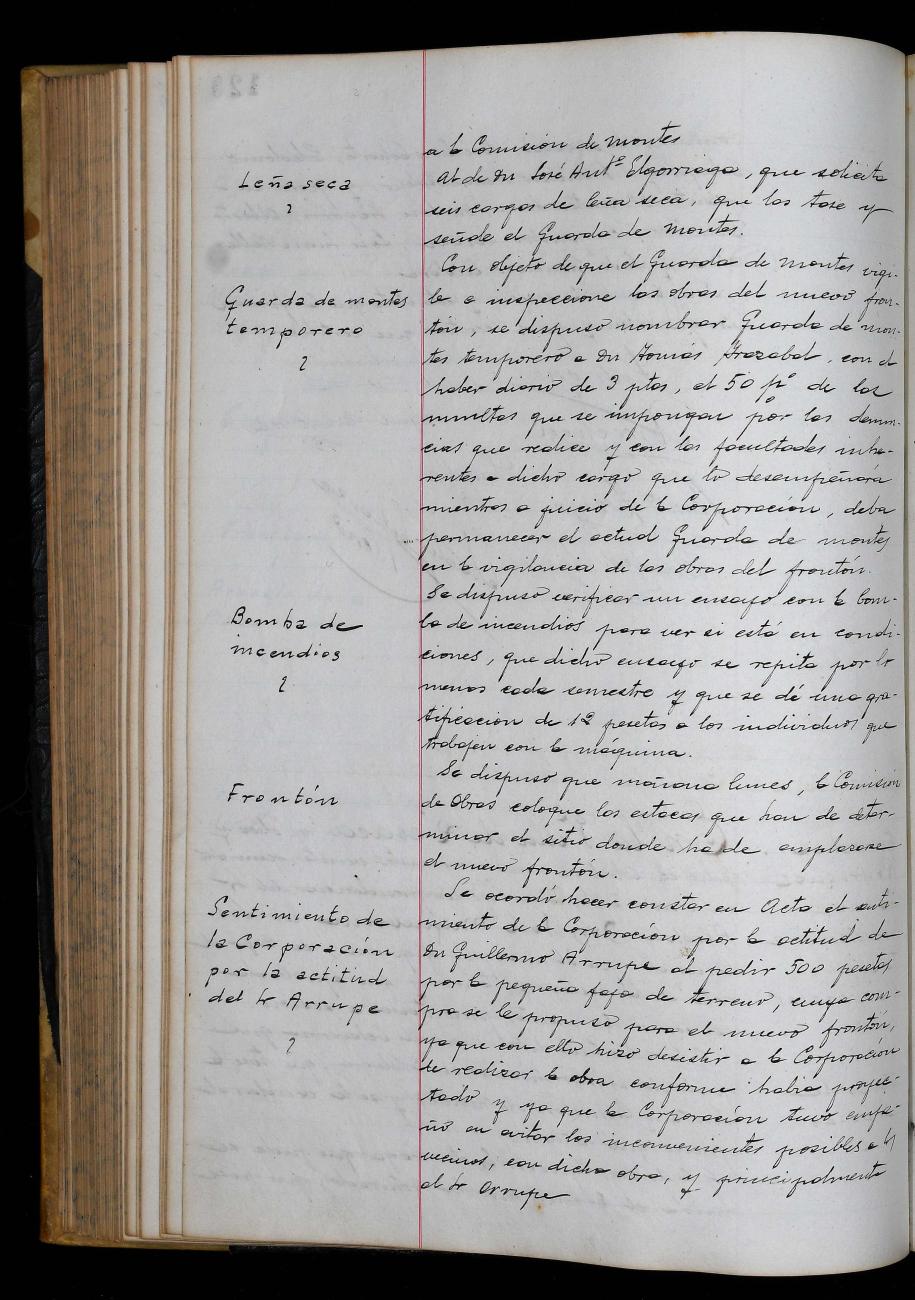 a la Comisión de montes
Leña seca
Al de Dn José Antº Elgorriaga, que solicita
seis cargas de leña seca, que las tase y
señale el Guarda de montes.
Guarda de montes
temporero
Con objeto de que el Guarda de montes vigi-
le e inspeccione las obras del nuevo fron-
tón, se dispuso nombrar Guarda de mon-
tes temporero a Dn Tomás Irazabal, con el
haber diario de 3 ptas, el 50 pº de las
multas que se impongan por las denun-
cias que realice y con las facultades inhe-
rentes a dicho cargo que lo desempeñará
mientras a juicio de la Corporación, deba
permanecer el actual Guarda de montes
en la vigilancia de las obras del frontón.
Bomba de
incendios
Se dispuso verificar un ensayo con la bom-
ba de incendios para ver si está en condi-
ciones, que dicho ensayo se repita por lo
menos cada semestre y que se dé una gra-
tificacion de pesetas a los individuos que
trabajen con la máquina.
Frontón
Se dispuso que mañana lunes, la Comisión
de Obras coloque las estacas que han de deter-
minar el sitio donde ha de emplazarse
el nuevo frontón.
Sentimiento de
la Corporación
por la actitud
del Sr Arrupe
Se acordó hacer constar en Acta el senti-
miento de la Corporación por la actitud de
Dn Guillermo Arrupe al pedir 500 pesetas
por la pequeña faja de terreno, cuya com-
pra se le propuso para el nuevo frontón,
ya que con ello hizo desistir a la Corporación
de realizar la obra conforme habia proyec-
tado y ya que la Corporación tuvo empe-
ño en evitar los inconvenientes posibles a
vecinos, con dicha obra, y principalmente
al Sr Arrupe